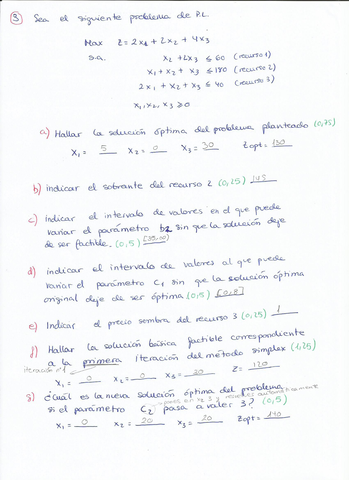 ③ Sea el siguiente problema de P.L.
Max Z = 2x1 + 2x2 + 4x3
s.a. x2 + 2x3 ≤ 60 (recurso 1)
x1 + x2 + x3 ≤ 180 (recurso 2)
2x1 + x2 + x3 ≤ 40 (recurso 3)
x1, x2, x3 ≥ 0
a) Hallar la solución óptima del problema planteado (0,75)
x1 = 5 x2 = 0 x3 = 30 Zopt = 130
b) indicar el sobrante del recurso 2 (0,25) 145
c) Indicar el intervalo de valores en el que puede
variar el parámetro b2 sin que la solución deje
de ser factible. (0,5)
d) indicar el intervalo de valores al que puede
variar el parámetro C1 sin que la solución óptima
original deje de ser óptima (0,5) [0,8]
e) Indicar el precio sombra del recurso 3 (0,25) 1
f) Hallar la solución básica factible correspondiente
a la primera iteración del método simplex (1,25)
iteración nº1
x1 = 0 x2 = 0 x3 = 30 Z = 120
g) ¿Cuál es la nueva solución óptima del problema
si el parámetro C2 pasa a valer 3? (0,5)
x1 = 0 x2 = 20 x3 = 20 Zopt = 140